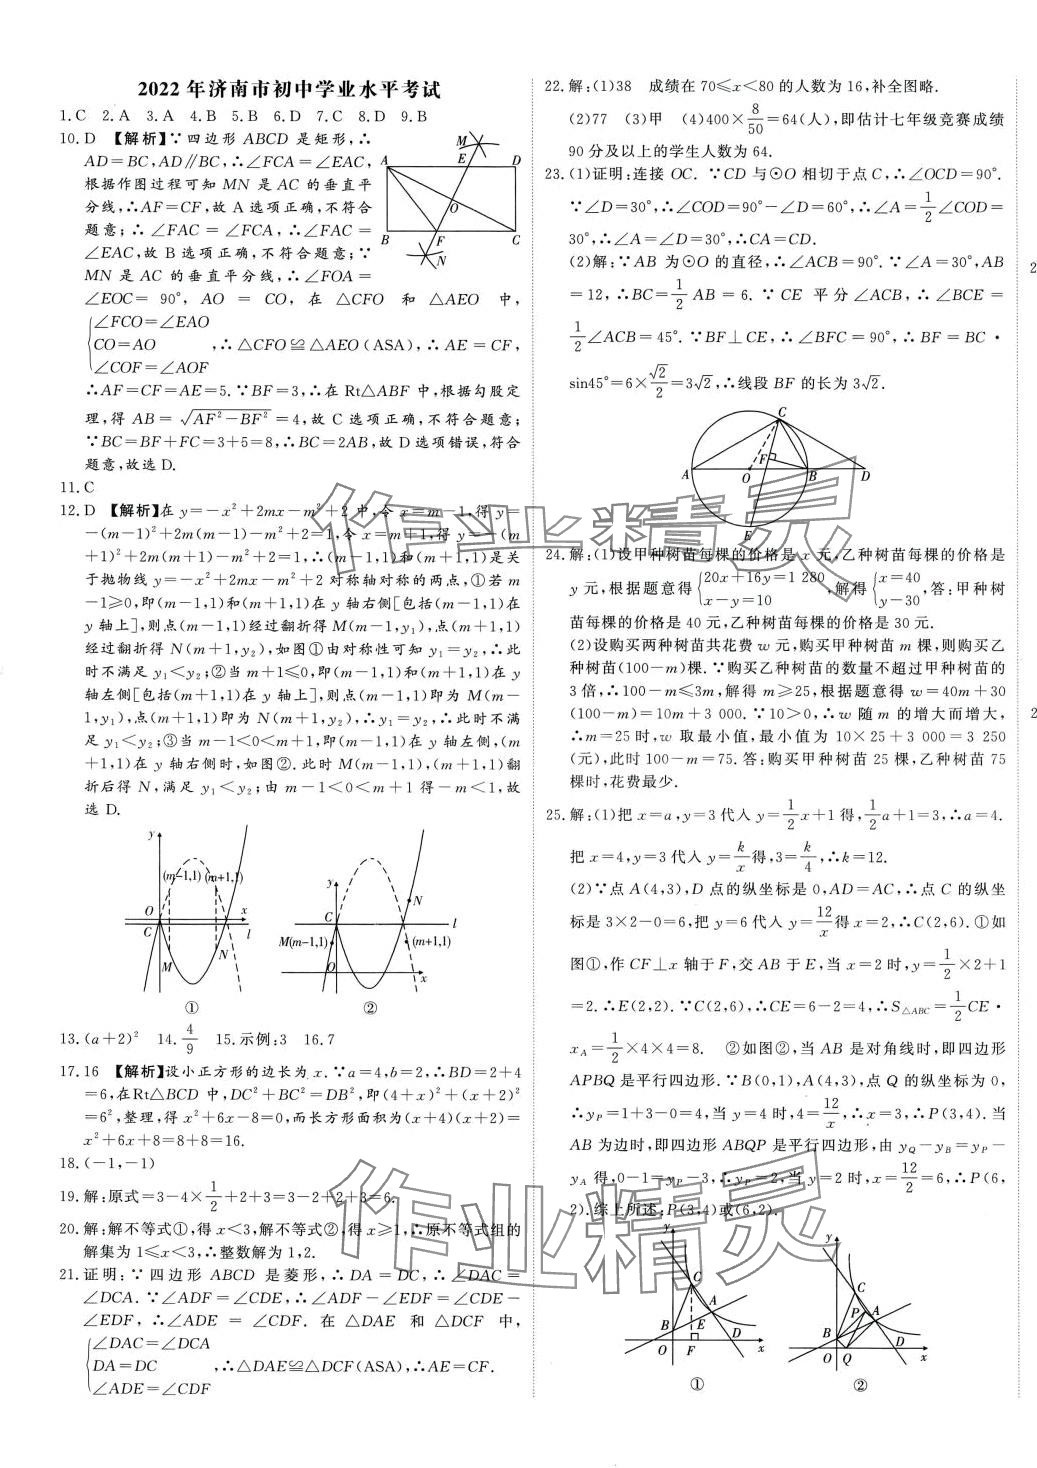 2022 年济南市初中学业水平考试
1. C  2. A  3. A  4. B  5. D  6. D  7. C  8. D  9. B
10. D 【解析】∵四边形 ABCD 是矩形,∴
AD=BC,AD∥BC,∴∠FCA=∠EAC,
根据作图过程可知 MN 是 AC 的垂直平
分线,∴AF=CF,故 A 选项正确,不符合
题意;∴∠FAC=∠FCA,∴∠FAC=
∠EAC,故 B 选项正确,不符合题意;∵
MN 是 AC 的垂直平分线,∴∠FOA=
∠EOC=90°,AO=CO,在△CFO 和△AEO 中,
∠FCO=∠EAO
CO=AO ,∴△CFO≌△AEO(ASA),∴AE=CF,
∠COF=∠AOF
∴AF=CF=AE=5.∵BF=3,∴在 Rt△ABF 中,根据勾股定
理,得 AB=√(AF²−BF²)=4,故 C 选项正确,不符合题意;
∵BC=BF+FC=3+5=8,∴BC=2AB,故 D 选项错误,符合
题意,故选 D.
M E A D O B F C N
11. C
12. D 【解析】在 y=−x²+2mx−m²+2 中,令 x=m−1,得 y=
−(m−1)²+2m(m−1)−m²+2=1,令 x=m+1,得 y=−(m
+1)²+2m(m+1)−m²+2=1,∴(m−1,1)和(m+1,1)是关
于抛物线 y=−x²+2mx−m²+2 对称轴对称的两点,①若 m
−1≥0,即(m−1,1)和(m+1,1)在 y 轴右侧[包括(m−1,1)在
y 轴上],则点(m−1,1)经过翻折得 M(m−1,y₁),点(m+1,1)
经过翻折得 N(m+1,y₂),如图①由对称性可知 y₁=y₂,∴此
时不满足 y₁<y₂;②当 m+1≤0,即(m−1,1)和(m+1,1)在 y
轴左侧[包括(m+1,1)在 y 轴上],则点(m−1,1)即为 M(m−
1,y₁),点(m+1,1)即为 N(m+1,y₂),∴y₁=y₂,∴此时不满
足 y₁<y₂;③当 m−1<0<m+1,即(m−1,1)在 y 轴左侧,(m
+1,1)在 y 轴右侧时,如图②.此时 M(m−1,1),(m+1,1)翻
折后得 N,满足 y₁<y₂;由 m−1<0<m+1 得−m<1,故
选 D.
y (m−1,1) (m+1,1) O x C l M N ①
y N C l M(m−1,1) (m+1,1) O ②
13. (a+2)²  14. 4/9  15. 示例:3  16. 7
17. 16 【解析】设小正方形的边长为 x.∵a=4,b=2,∴BD=2+4
=6,在Rt△BCD 中,DC²+BC²=DB²,即(4+x)²+(x+2)²
=6²,整理,得 x²+6x−8=0,而长方形面积为(x+4)(x+2)=
x²+6x+8=8+8=16.
18. (−1,−1)
19. 解:原式=3−4×1/2+2+3=3−2+2+3=6.
20. 解:解不等式①,得 x<3,解不等式②,得 x≥1,∴原不等式组的
解集为 1≤x<3,∴整数解为 1,2.
21. 证明:∵四边形 ABCD 是菱形,∴DA=DC,∴∠DAC=
∠DCA.∵∠ADF=∠CDE,∴∠ADF−∠EDF=∠CDE−
∠EDF,∴∠ADE=∠CDF.在△DAE 和△DCF 中,
∠DAC=∠DCA
DA=DC ,∴△DAE≌△DCF(ASA),∴AE=CF.
∠ADE=∠CDF
22. 解:(1)38  成绩在 70≤x<80 的人数为 16,补全图略.
(2)77  (3)甲  (4)400×8/50=64(人),即估计七年级竞赛成绩
90 分及以上的学生人数为 64.
23. (1)证明:连接 OC.∵CD 与⊙O 相切于点 C,∴∠OCD=90°.
∵∠D=30°,∴∠COD=90°−∠D=60°,∴∠A=1/2∠COD=
30°,∴∠A=∠D=30°,∴CA=CD.
(2)解:∵AB 为⊙O 的直径,∴∠ACB=90°.∵∠A=30°,AB
=12,∴BC=1/2AB=6.∵CE 平分∠ACB,∴∠BCE=
1/2∠ACB=45°.∵BF⊥CE,∴∠BFC=90°,∴BF=BC·
sin45°=6×√2/2=3√2,∴线段 BF 的长为 3√2.
C F A O B D E
24. 解:(1)设甲种树苗每棵的价格是 x 元,乙种树苗每棵的价格是
y 元,根据题意得{20x+16y=1 280 x−y=10,解得{x=40 y−30,答:甲种树
苗每棵的价格是 40 元,乙种树苗每棵的价格是 30 元.
(2)设购买两种树苗共花费 w 元,购买甲种树苗 m 棵,则购买乙
种树苗(100−m)棵.∵购买乙种树苗的数量不超过甲种树苗的
3 倍,∴100−m≤3m,解得 m≥25,根据题意得 w=40m+30
(100−m)=10m+3 000.∵10>0,∴w 随 m 的增大而增大,
∴m=25 时,w 取最小值,最小值为 10×25+3 000=3 250
(元),此时 100−m=75.答:购买甲种树苗 25 棵,乙种树苗 75
棵时,花费最少.
25. 解:(1)把 x=a,y=3 代入 y=1/2x+1 得,1/2a+1=3,∴a=4.
把 x=4,y=3 代入 y=k/x得,3=k/4,∴k=12.
(2)∵点 A(4,3),D 点的纵坐标是 0,AD=AC,∴点 C 的纵坐
标是 3×2−0=6,把 y=6 代入 y=12/x得 x=2,∴C(2,6).①如
图①,作 CF⊥x 轴于 F,交 AB 于 E,当 x=2 时,y=1/2×2+1
=2.∴E(2,2).∵C(2,6),∴CE=6−2=4,∴S△ABC=1/2CE·
xA=1/2×4×4=8. ②如图②,当 AB 是对角线时,即四边形
APBQ 是平行四边形.∵B(0,1),A(4,3),点 Q 的纵坐标为 0,
∴yP=1+3−0=4,当 y=4 时,4=12/x,∴x=3,∴P(3,4).当
AB 为边时,即四边形 ABQP 是平行四边形,由 yQ−yB=yP−
yA 得,0−1=yP−3,∴yP=2,当 y=2 时,x=12/2=6,∴P(6,
2).综上所述:P(3,4)或(6,2).
y C A B E O F D x ①
y C P A B O Q D x ②
2
2
作业精灵
作业精灵